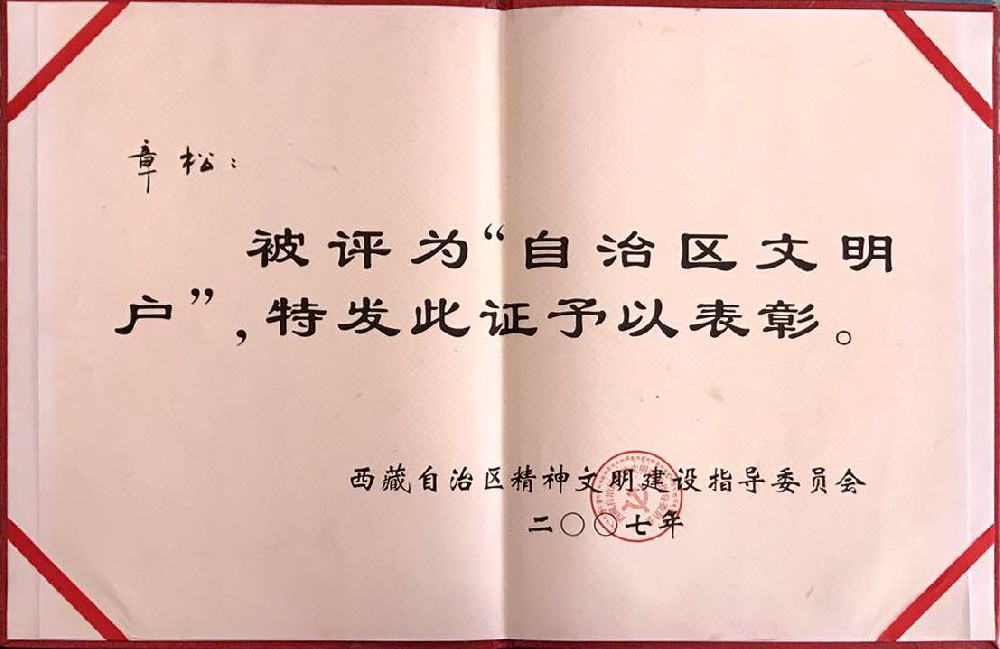 章松：
被评为“自治区文明
户”，特发此证予以表彰。
西藏自治区精神文明建设指导委员会
二〇〇七年